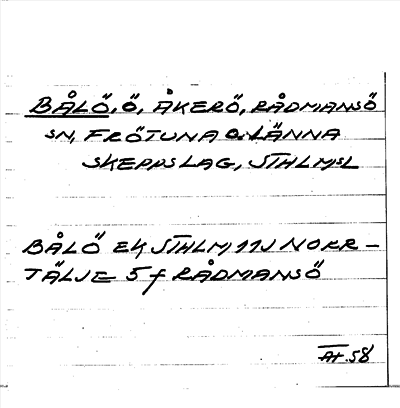 BÅLÖ, Ö, ÅKERÖ, RÅDMANSÖ
SN, FRÖTUNA O. LÄNNA
SKEPPSLAG, STHLMSL
BÅLÖ EK STHLM 11J NORR-
TÄLJE 5 f RÅDMANSÖ
At. 58